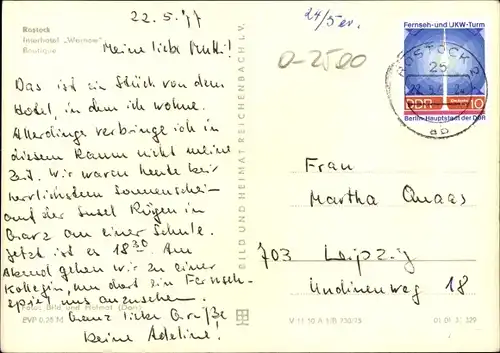 22.5.77
24/5 er.
Rostock
Interhotel „Warnow"
Boutique
Meine liebe Mutti!
0-2500
Das ist ein Stück von dem
Hotel, in dem ich wohne.
Allerdings verbringe ich in
diesem Raum nicht meine
Zeit. Wir waren heute bei
herrlichstem Sonnenschein
auf der Insel Rügen in
Garz an einer Schule.
Jetzt ist es 18³⁰. Am
Abend gehen wir zu einer
Kollegin, um dort ein Fernseh-
spiel uns anzusehen.
Ganz liebe Grüße
Deine Adeline!
Foto: Bild und Heimat (Darr)
EVP 0,25 M
BILD UND HEIMAT REICHENBACH i. V.
V 11 50 A 1/B 730/75
01 01 31 329
Fernseh- und UKW-Turm
DDR 10
Berlin-Hauptstadt der DDR
ROSTOCK 2
25
Frau
Martha Quaas
703 Leipzig
Undinenweg 18